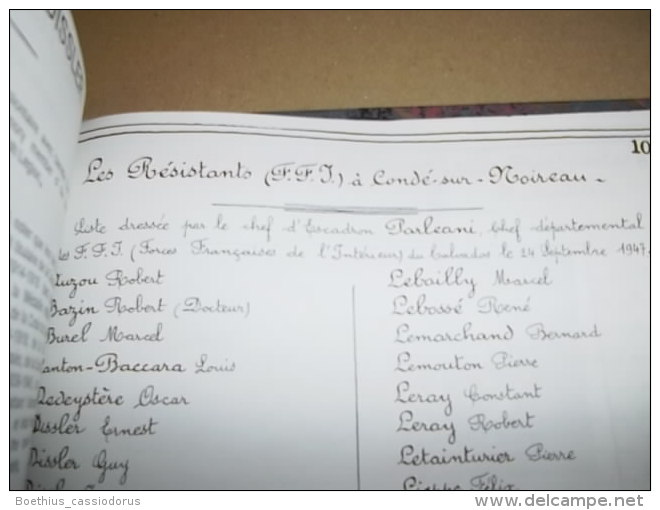 DISSLER
10
Les Résistants (F.F.I.) à Condé-sur-Noireau
Liste dressée par le chef d'Escadron Parleani, Chef départemental
des F.F.I. (Forces Françaises de l'Intérieur) du Calvados le 24 Septembre 1947.
uzou Robert
Bazin Robert (Docteur)
Burel Marcel
Canton-Baccara Louis
Dedeystère Oscar
Dissler Ernest
Dissler Guy
Lebailly Marcel
Lebossé René
Lemarchand Bernard
Lemouton Pierre
Leray Constant
Leray Robert
Letainturier Pierre
Lieppe Félix
Boethius_cassiodorus
delcampe.net